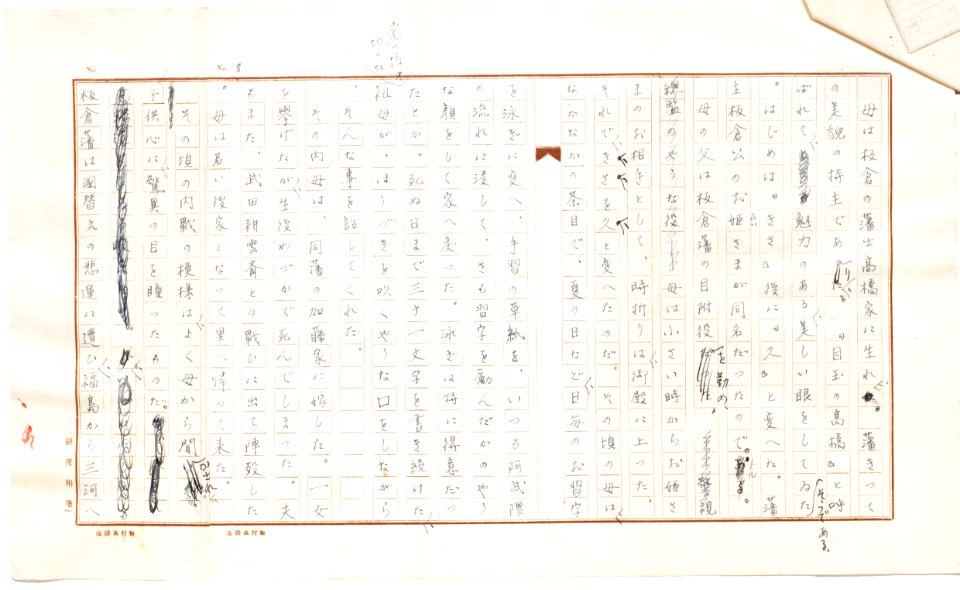 母は板倉の藩士高橋家に生れ、藩きつて
の美貌の持主であり、『目玉の高橋』と呼
ばれて魅力のある美しい眼をしてゐたさうである。
。はじめは『きさ』後に『久』と変へた。藩
主板倉公のお姫さまが同名だつたので。
母の父は板倉藩の目附役を勤め、警視
総監のやうな役 母は小さい時からお姫さ
まのお相手として、時折りは御殿に上つた。
それできさを久と変へたのだ。その頃の母は
なかなかの茶目で、夏の日など日毎のお習字
を泳ぎに変へ、手習の草紙を、いつも阿武隈
の流れに浸して、さも習字を励んだかのやう
な顔をして家へ戻つた。泳ぎは特に得意だつ
たとか。死ぬ日まで三十一文字を書き続けた
祖母が、ほうづきを吹くやうな口をしながら
、そんな事を話してくれた。
その内母は、同藩の加藤家に嫁した。一女
を挙げたが生後わづかで死んでしまつた。夫
もまた、武田耕雲斎との戦ひに出て陣歿した
。母は若い後家となつて里へ帰つて来た。
その頃の内戦の模様はよく母から聞かされ、
子供心に驚異の目を瞠つたものだ。
板倉藩は国替えの悲運に遭ひ福島から三河へ
No.
No. 8